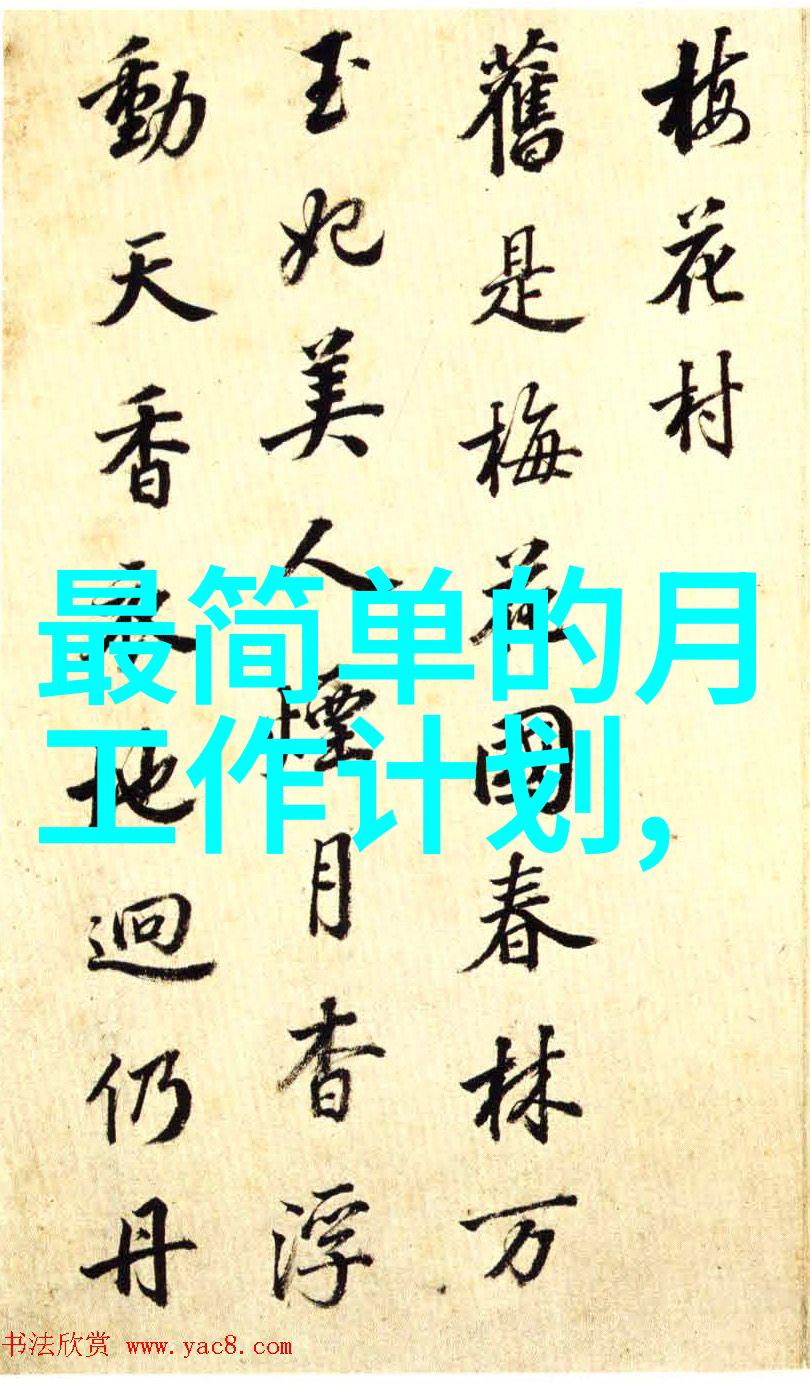 梅花村
舊是梅花國春林万
玉妃美人煙月杳浮
動天香地逈仍丹
最简单的月
工作计划,
书法欣赏 www.yac8.com